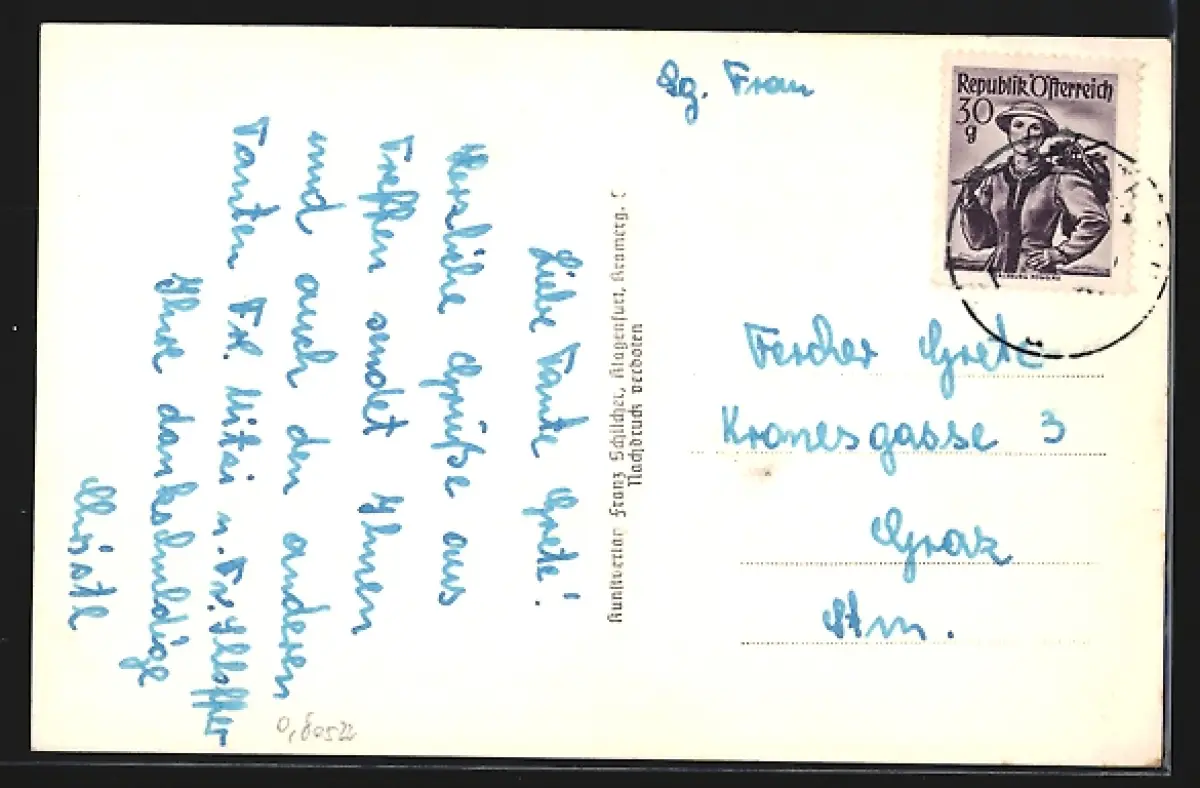 Liebe Tante Grete!
Herzliche Grüße aus
Treffen sendet Ihnen
und auch den anderen
Tanten Frl. Mitzi u. Fr.
Ihre dankschuldige
Kunstverlag Franz Schilcher, Klagenfurt, Kramerg.
Nachdruck verboten
Sg. Frau
Republik Österreich
30
g
Fercher Grete
Kronesgasse 3
Graz
Stm.
0,80522